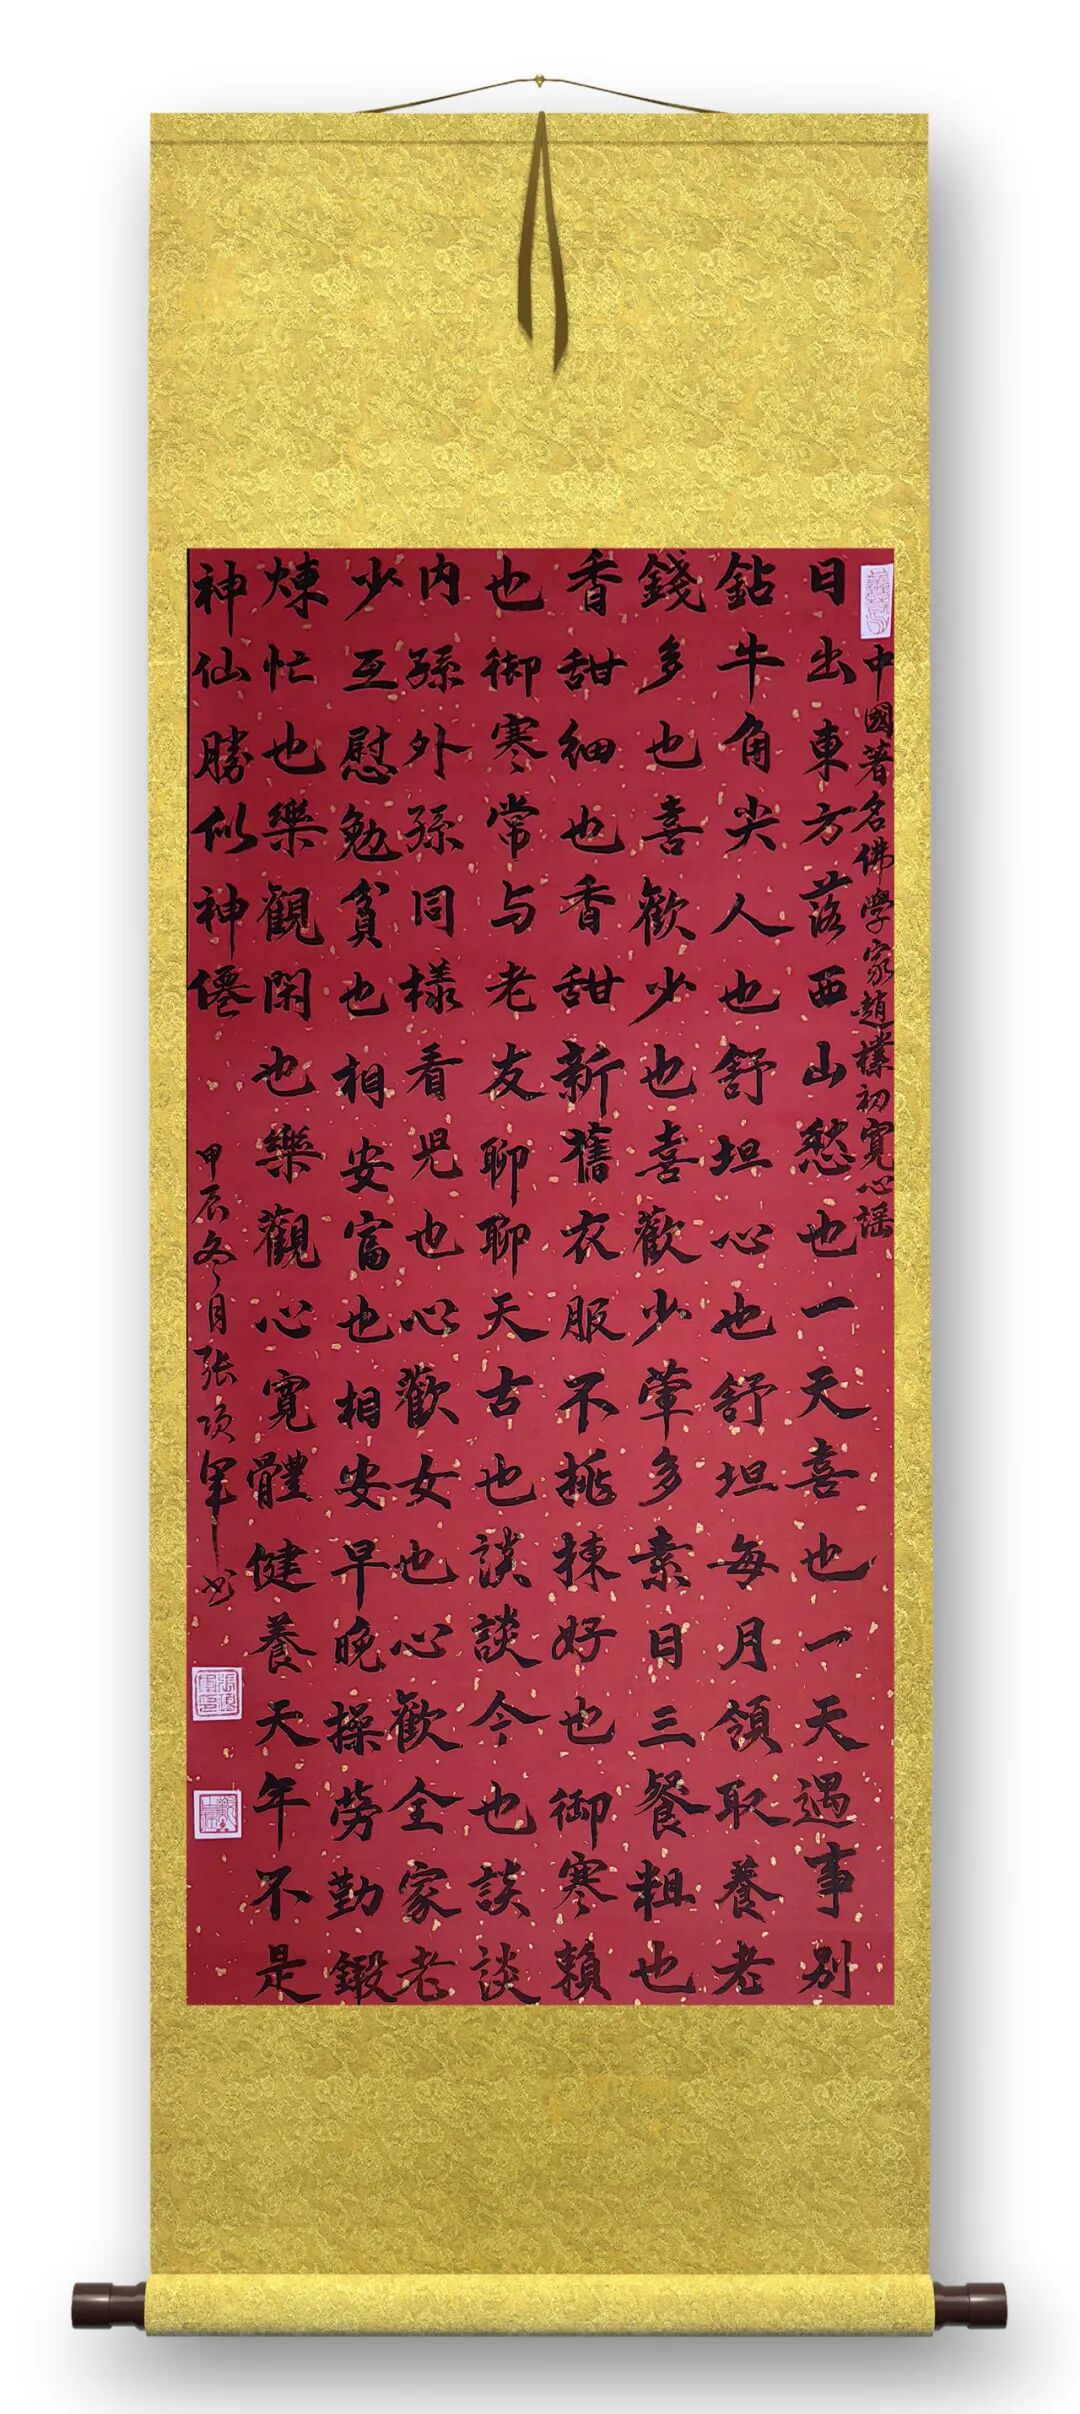 中國著名佛學家趙樸初寬心謠
日出東方落西山愁也一天喜也一天遇事别
鉆牛角尖人也舒坦心也舒坦每月領取養老
錢多也喜歡少也喜歡少葷多素日三餐粗也
香甜細也香甜新舊衣服不挑揀好也御寒賴
也御寒常与老友聊聊天古也談談今也談談
内孫外孫同樣看児也心歡女也心歡全家老
少互慰勉貧也相安富也相安早晚操勞勤鍛
煉忙也樂觀閑也樂觀心寬體健養天年不是
神仙勝似神僊
甲辰冬月張項軍书